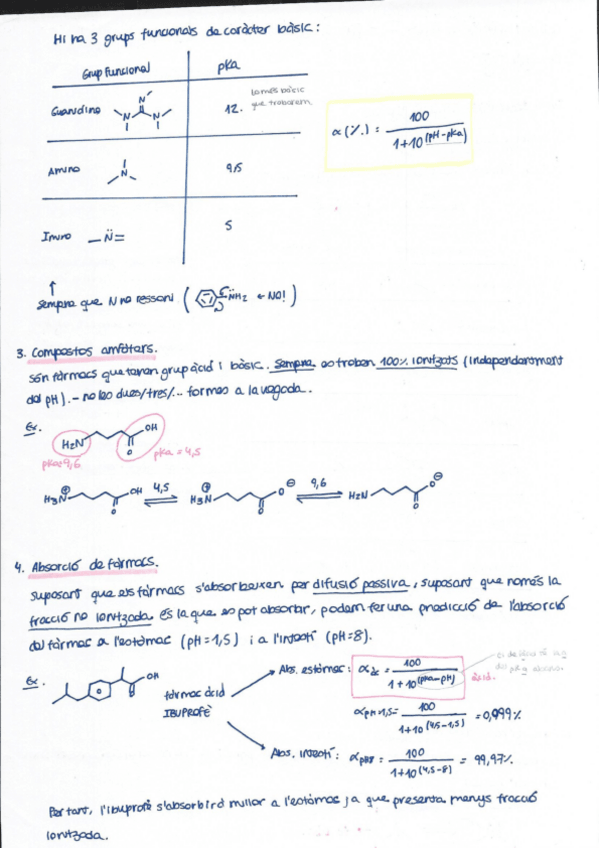 Hi ha 3 grups funcionals de caràcter bàsic:
Grup Funcional pKa
Guanidino N N N 12. la més bàsic
que trobarem
α(%) = 100 / 1+10^(pH-pKa)
Amino N 9,5
Imino N= 5
↑
Sempre que N no ressoni ( NH2 ← NO!)
3. Compostos amfòters.
són fàrmacs que tenen grup àcid i bàsic. Sempre es troben 100% ionitzats (independentment
del pH). - no les dues/tres/... formes a la vegada.
Ex.
H2N OH O
pka=9,6 pka=4,5
H3N ⊕ OH O 4,5 H3N ⊕ O ⊖ O 9,6 H2N O ⊖ O
4. Absorció de fàrmacs.
Suposant que els fàrmacs s'absorbeixen per difusió passiva, suposant que només la
fracció no ionitzada és la que es pot absorbir, podem fer una predicció de l'absorció
del fàrmac a l'estómac (pH=1,5) i a l'intestí (pH=8).
Ex. OH O
fàrmac àcid
IBUPROFÈ
Abs. estómac: α = 100 / 1+10^(pka-pH) àcid.
α pH=1,5 = 100 / 1+10^(4,5-1,5) = 0,099%
Abs. intestí: α pH8 = 100 / 1+10^(4,5-8) = 99,97%
Per tant, l'ibuprofè s'absorbirà millor a l'estómac ja que presenta menys fracció
ionitzada.